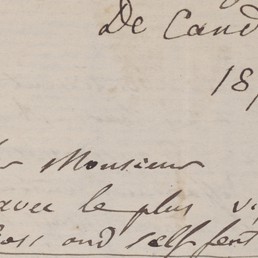 De Cand
18
Monsieur
avec le plus vi
Cross and self-fert